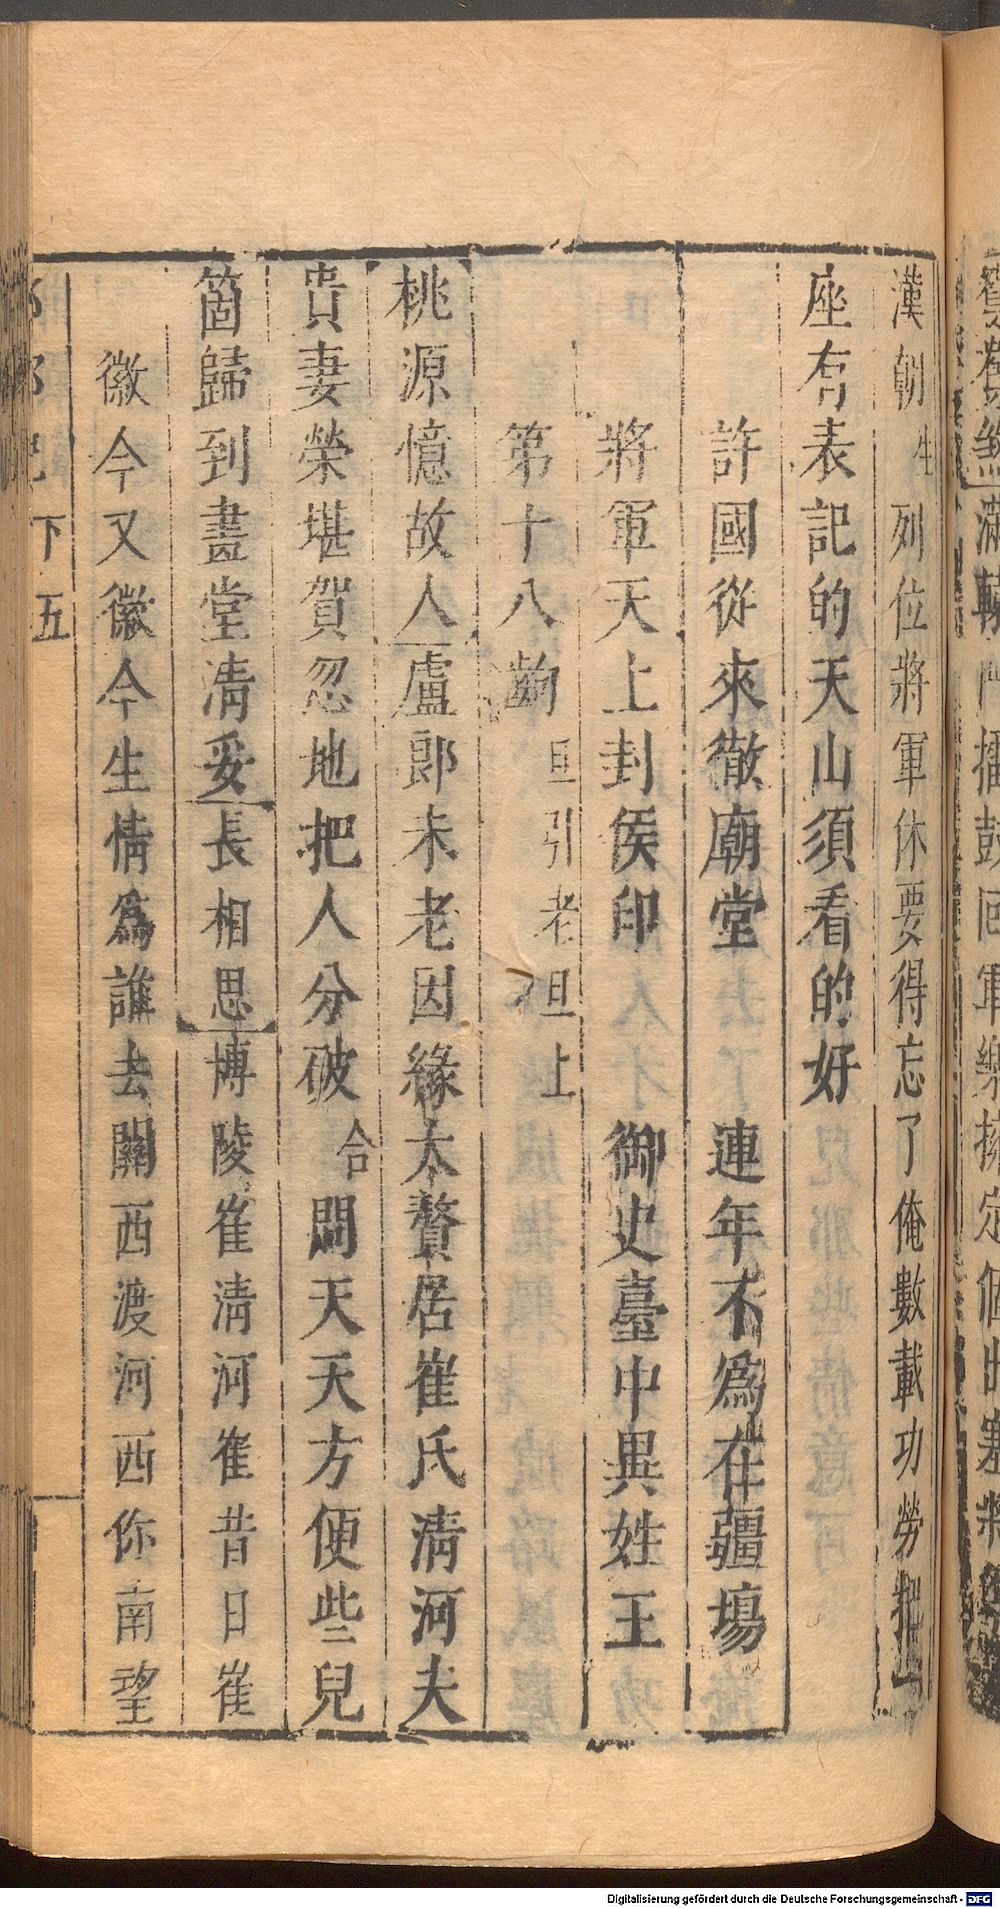 漢朝生列位將軍休要得忘了俺數載功勞把一
座有表記的天山須看的好
許國從來徹廟堂　連年不爲在疆場
將軍天上封侯印　御史臺中異姓王
第十八齣 旦引老旦上
桃源憶故人盧郎未老因緣大贅居崔氏清河夫
貴妻榮堪賀忽地把人分破合問天天方便些兒
箇歸到畫堂清妥長相思博陵崔清河崔昔日崔
徽今又徽今生情爲誰去關西渡河西你南望
下五
Digitalisierung gefördert durch die Deutsche Forschungsgemeinschaft - DFG